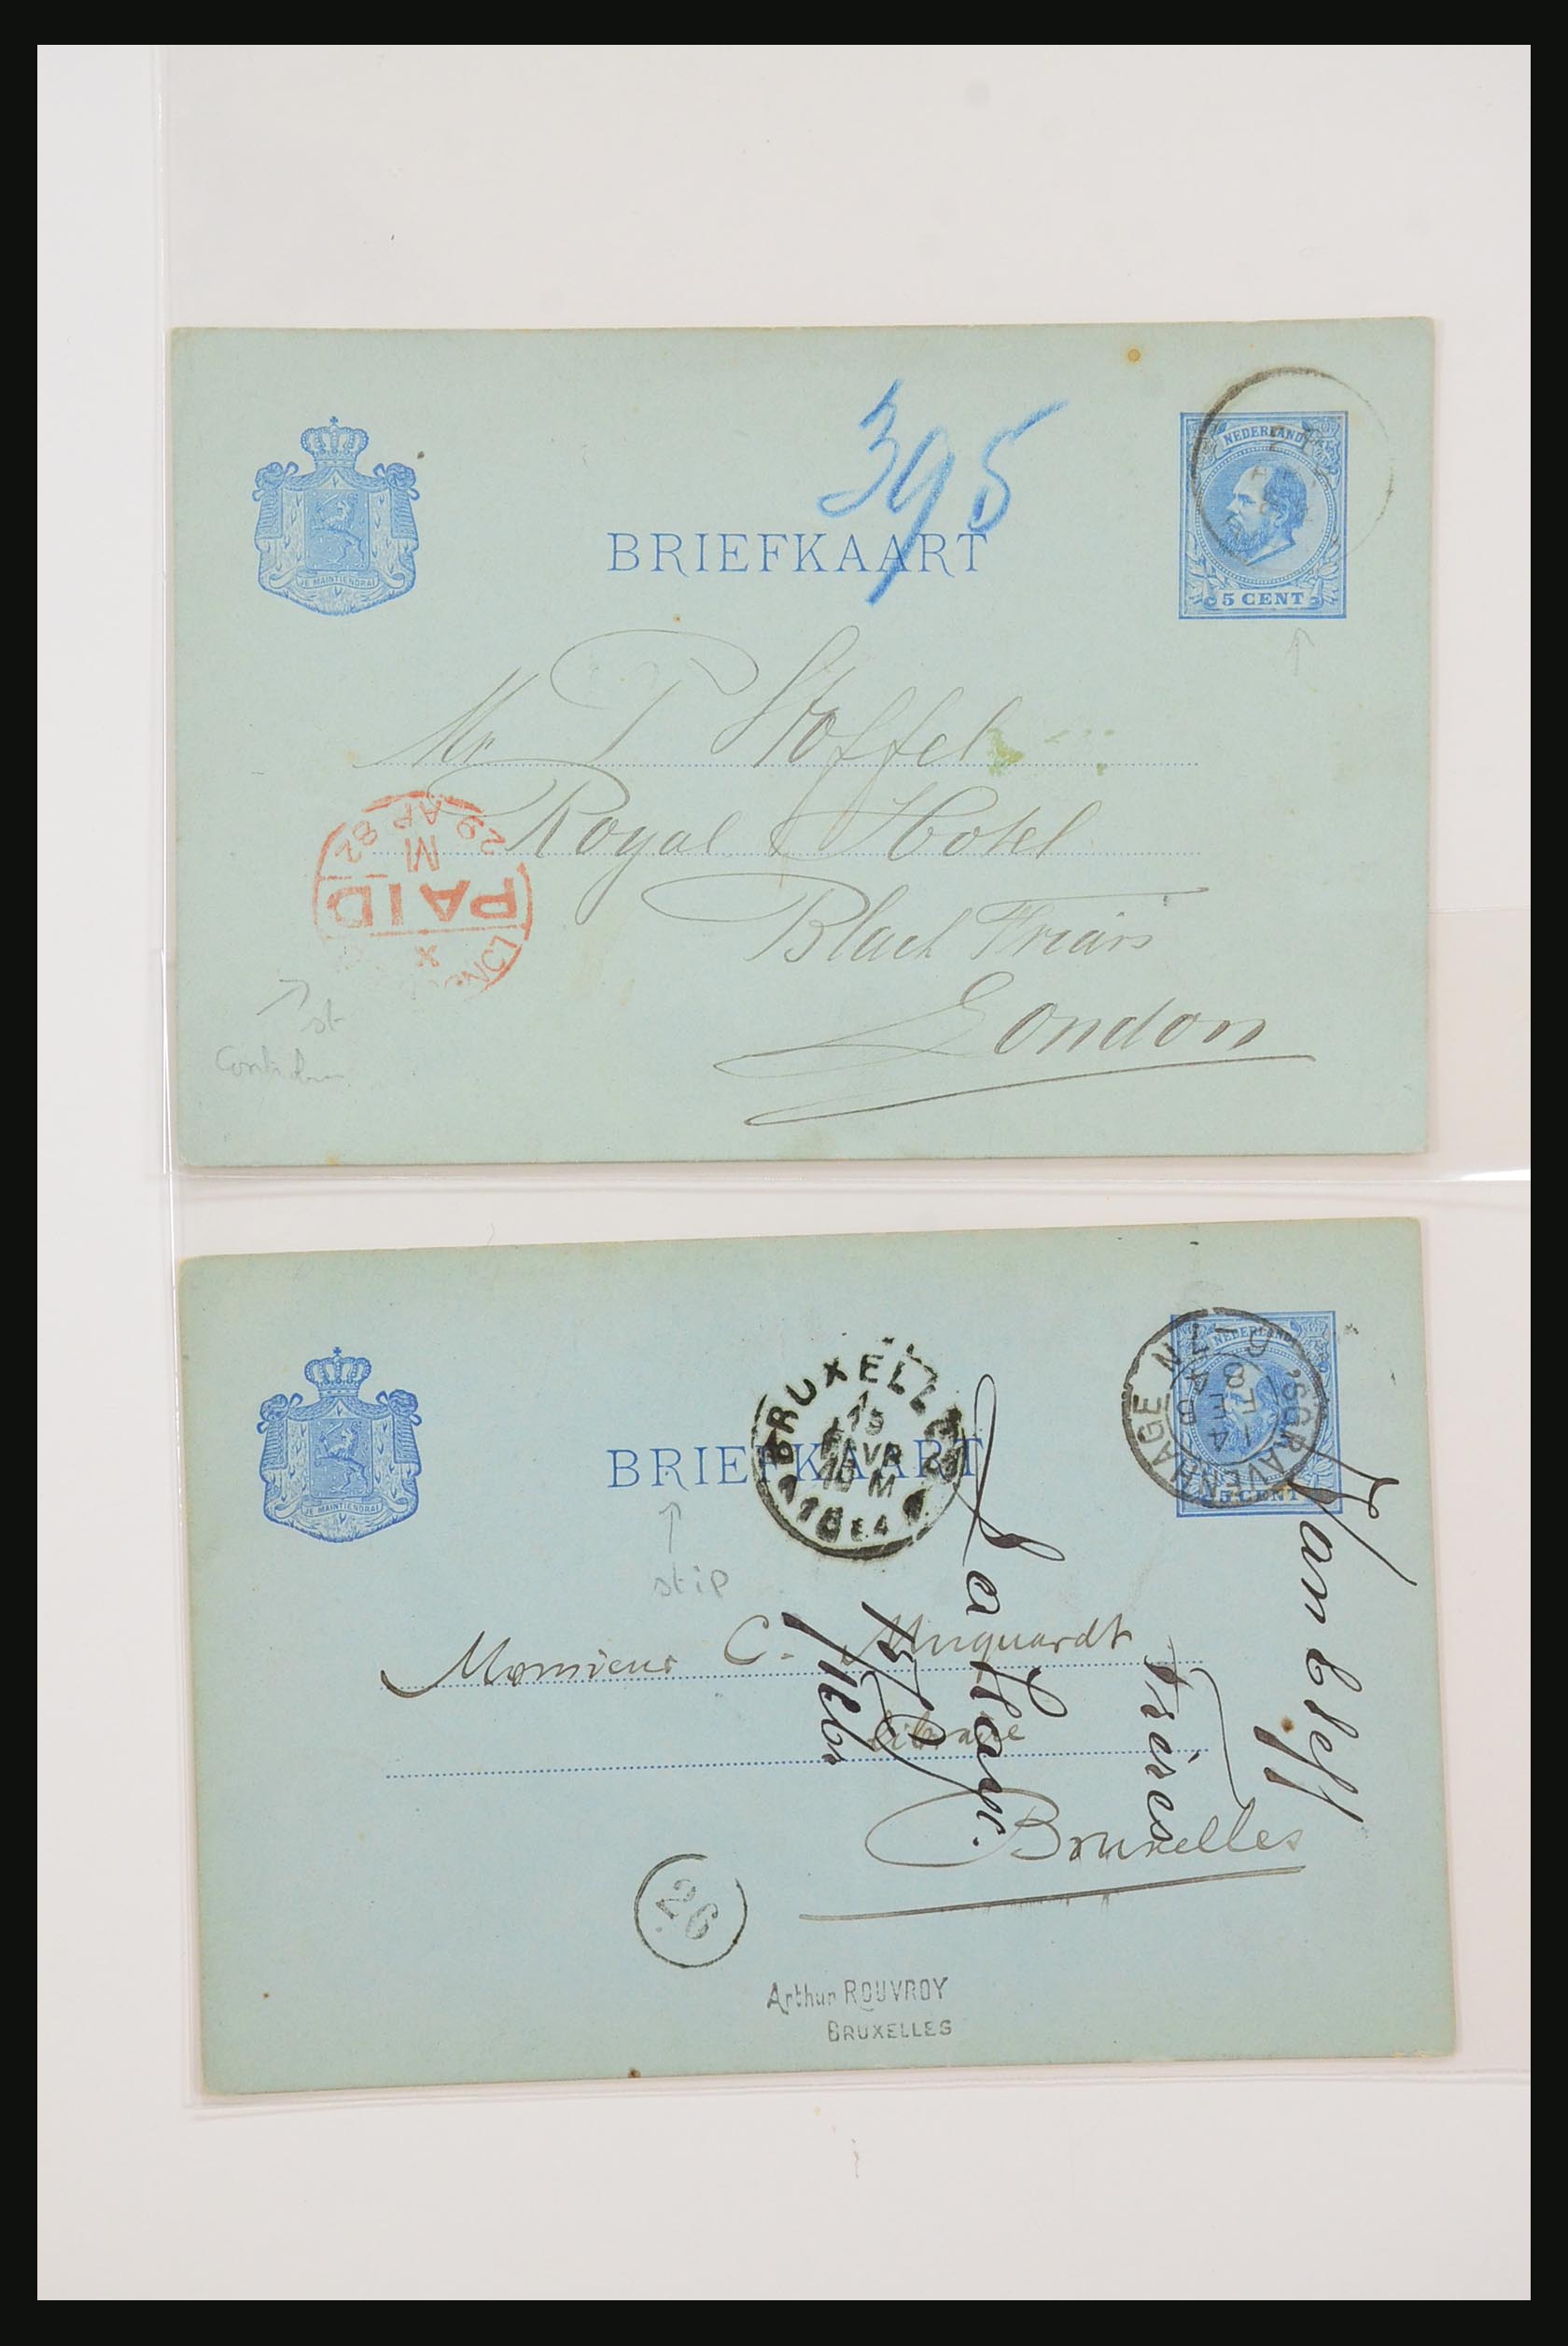 395
NEDERLAND
JE MAINTIENDRAI
BRIEFKAART
5 CENT
Mr P Stoffel
Royal Hotel
Black Friars
London
LONDON
x
PAID
M
29 AP 82
st
NEDERLAND
5 CENT
'SGRAVENHAGE
14
FE
8
BRUXELLES
1
15
FEVR
10 M
1884
JE MAINTIENDRAI
BRIEFKAART
stip
Monsieur C. Muquardt
libraire
Bruxelles
van Cleef
Frères
La Haye.
15/2
26
Arthur ROUVROY
BRUXELLES